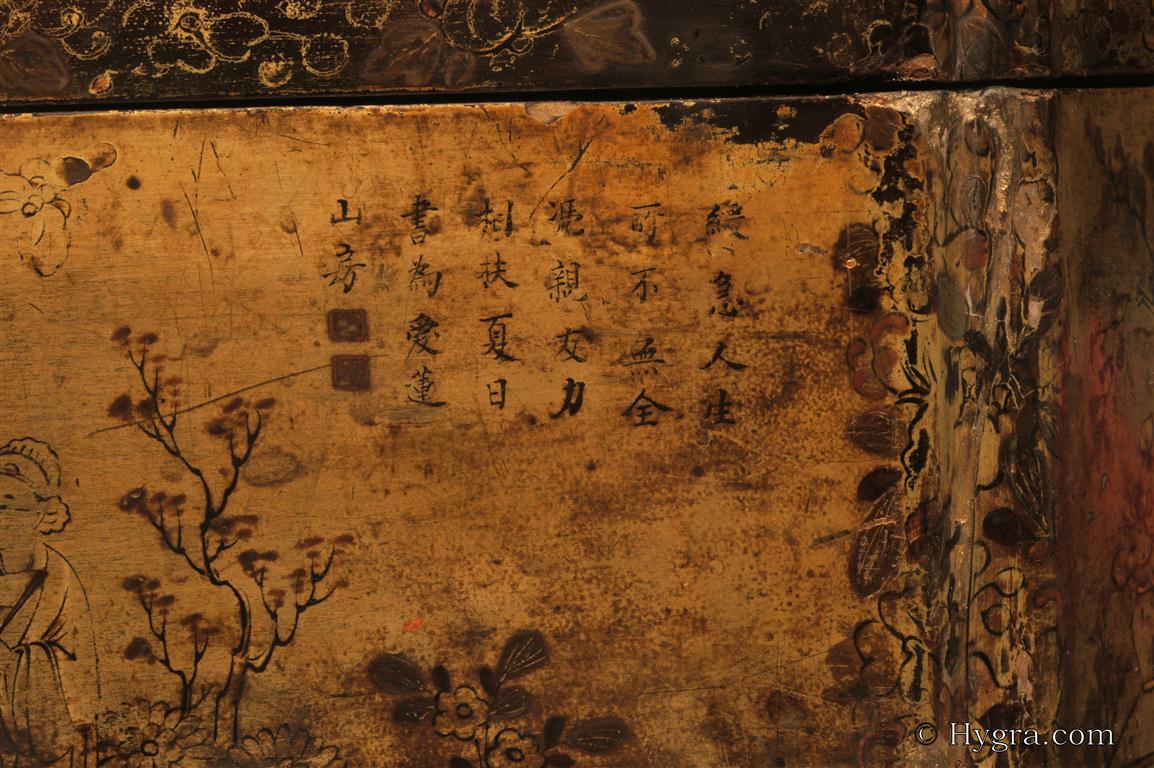 緩急人生
所不無全
凴親友力
相扶夏日
書為愛蓮
山房
© Hygra.com